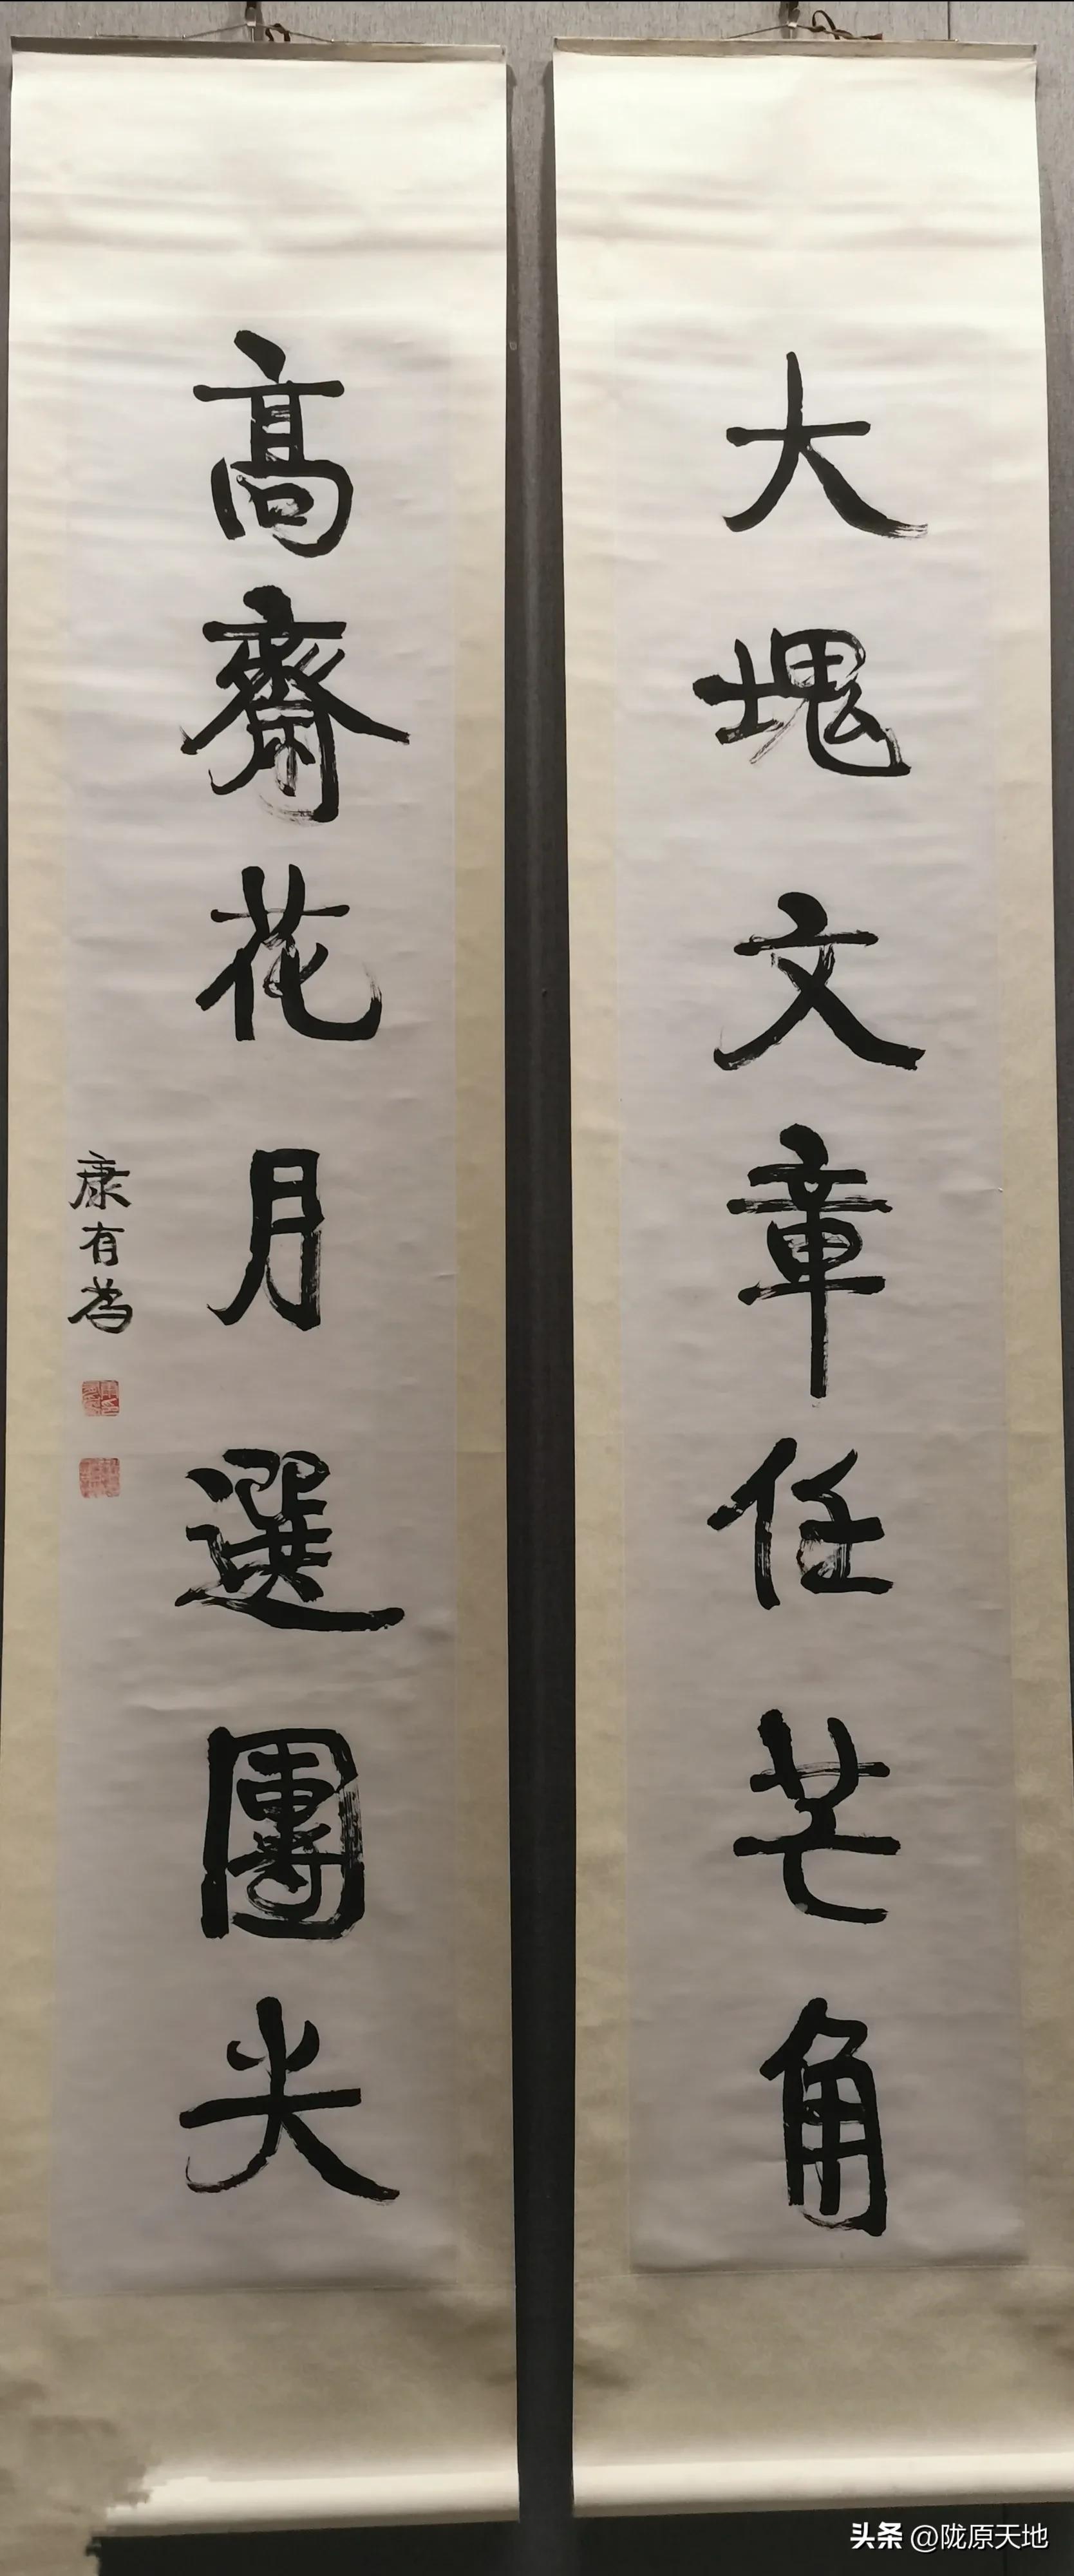 大塊文章任芒角
高齋花月選團尖
康有為
头条 @陇原天地